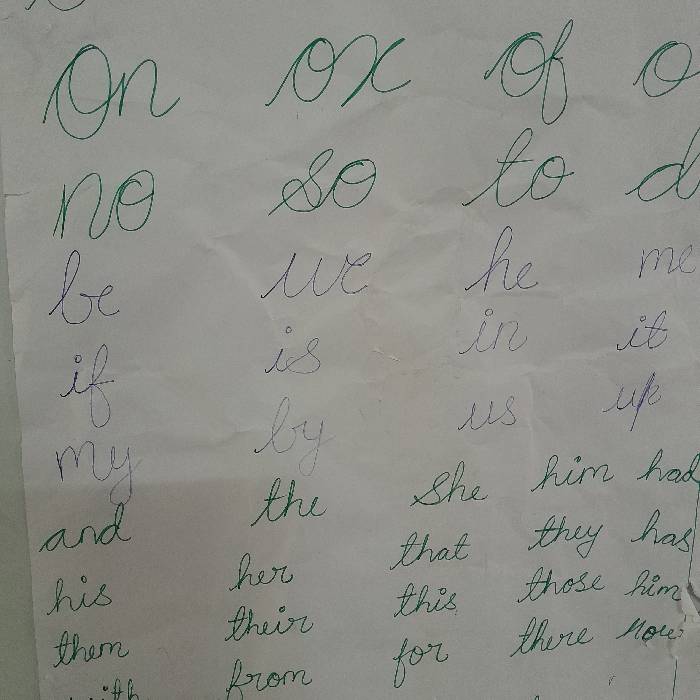 On ox Of
no so to
be we he me
if is in it
my by us up
and the She him had
his her that they has
them their this those him
with from for there now